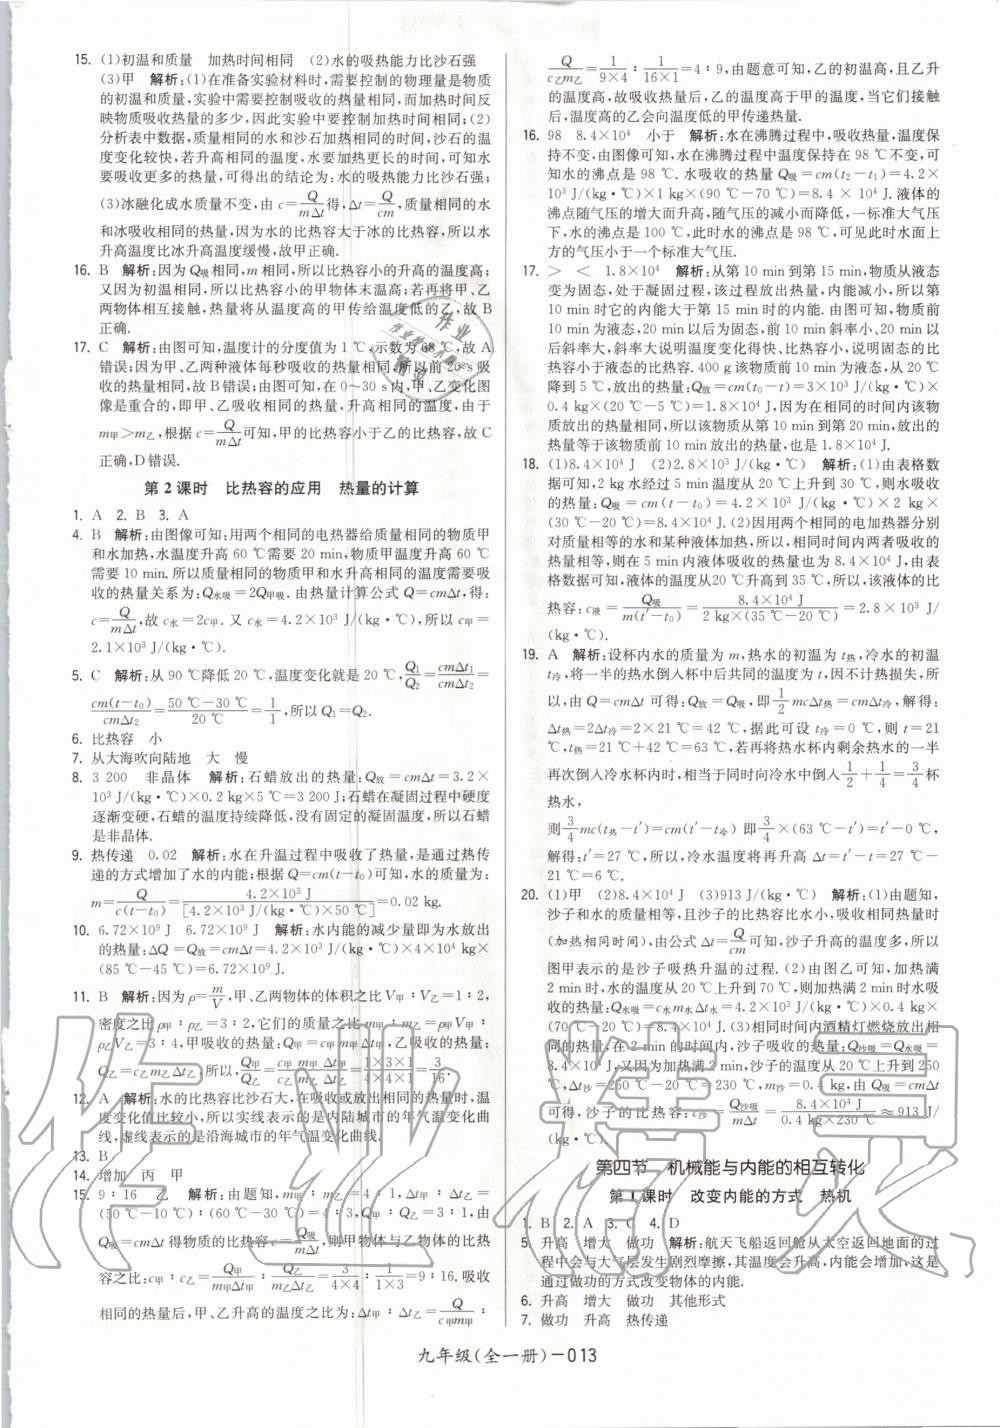 15. (1)初温和质量　加热时间相同　(2)水的吸热能力比沙石强
(3)甲　解析:(1)在准备实验材料时,需要控制的物理量是物质
的初温和质量,实验中需要控制吸收的热量相同,而加热时间反
映物质吸收热量的多少,因此实验中要控制加热时间相同;(2)
分析表中数据,质量相同的水和沙石加热相同的时间,沙石的温
度变化较快,若升高相同的温度,水要加热更长的时间,可知水
要吸收更多的热量,可得出的结论为:水的吸热能力比沙石强;
(3)冰融化成水质量不变,由 c=Q/(mΔt)得,Δt=Q/(cm),质量相同的水
和冰吸收相同的热量,因为水的比热容大于冰的比热容,所以水
升高温度比冰升高温度缓慢,故甲正确.
16. B　解析:因为 Q吸相同,m 相同,所以比热容小的升高的温度高;
又因为初温相同,所以比热容小的甲物体末温高;若再将甲、乙
两物体相互接触,热量将从温度高的甲传给温度低的乙,故 B
正确.
17. C　解析:由图可知,温度计的分度值为 1 ℃,示数为 68 ℃,故 A
错误;因为甲、乙两种液体每秒吸收的热量相同,所以前 20 s 吸
收的热量相同,故 B 错误;由图可知,在 0~30 s 内,甲、乙变化图
像是重合的,即甲、乙吸收相同的热量,升高相同的温度,由于
m甲>m乙,根据 c=Q/(mΔt)可知,甲的比热容小于乙的比热容,故 C
正确,D 错误.
第 2 课时　比热容的应用　热量的计算
1. A　2. B　3. A
4. B　解析:由图像可知:用两个相同的电热器给质量相同的物质甲
和水加热,水温度升高 60 ℃需要 20 min,物质甲温度升高 60 ℃
需要 10 min.所以质量相同的物质甲和水升高相同的温度需要吸
收的热量关系为:Q水吸=2Q甲吸.由热量计算公式 Q=cmΔt,得:
c=Q/(mΔt),故 c水=2c甲.又 c水=4.2×10³ J/(kg·℃),所以 c甲=
2.1×10³ J/(kg·℃).
5. C　解析:从 90 ℃降低 20 ℃,温度变化就是 20 ℃,Q₁/Q₂=cmΔt₁/cmΔt₂=
cm(t-t₀)/cmΔt₂=(50 ℃-30 ℃)/20 ℃=1/1,所以 Q₁=Q₂.
6. 比热容　小
7. 从大海吹向陆地　大　慢
8. 3 200　非晶体　解析:石蜡放出的热量:Q放=cmΔt=3.2×
10³ J/(kg·℃)×0.2 kg×5 ℃=3 200 J;石蜡在凝固过程中硬度
逐渐变硬,石蜡的温度持续降低,没有固定的凝固温度,所以石蜡
是非晶体.
9. 热传递　0.02　解析:水在升温过程中吸收了热量,是通过热传
递的方式增加了水的内能;根据 Q=cm(t-t₀)可知,水的质量为
m=Q/[c(t-t₀)]=4.2×10³ J/[4.2×10³ J/(kg·℃)×50 ℃]=0.02 kg.
10. 6.72×10⁹ J　6.72×10⁹ J　解析:水内能的减少量即为水放出
的热量:ΔQ=Q放=cmΔt=4.2×10³ J/(kg·℃)×4×10⁴ kg×
(85 ℃-45 ℃)=6.72×10⁹ J.
11. B　解析:因为 ρ=m/V,甲、乙两物体的体积之比 V甲∶V乙=1∶2,
密度之比 ρ甲∶ρ乙=3∶2,它们的质量之比 m甲∶m乙=ρ甲V甲∶
ρ乙V乙=3∶4,甲吸收的热量:Q甲=c甲m甲Δt甲,乙吸收的热量:
Q乙=c乙m乙Δt乙,所以,Q甲/Q乙=c甲m甲Δt甲/c乙m乙Δt乙=(1×3×1)/(4×4×1)=3/16.
12. A　解析:水的比热容比沙石大,在吸收或放出相同的热量时,温
度变化值比较小,所以实线表示的是内陆城市的年气温变化曲
线,虚线表示的是沿海城市的年气温变化曲线.
13. B
14. 增加　丙　甲
15. 9∶16　乙　解析:由题知,m甲∶m乙=4∶1,Δt甲∶Δt乙=
(50 ℃-10 ℃)∶(60 ℃-30 ℃)=4∶3,Q甲∶Q乙=3∶1,由
Q吸=cmΔt得物质的比热容 c=Q吸/(mΔt),则甲物体与乙物体的比热
容之比:c甲∶c乙=Q甲/(m甲Δt甲)∶Q乙/(m乙Δt乙)=3/(4×4)∶1/(1×3)=9∶16.吸收
相同的热量后,甲、乙升高的温度之比为:Δt甲∶Δt乙=Q/(c甲m甲)∶
Q/(c乙m乙)=1/(9×4)∶1/(16×1)=4∶9,由题意可知,乙的初温高,且乙升
的温度高,故吸收热量后,乙的温度高于甲的温度,当它们接触
后,温度高的乙会向温度低的甲传递热量.
16. 98　8.4×10⁴　小于　解析:水在沸腾过程中,吸收热量,温度保
持不变;由图像可知,水在沸腾过程中温度保持在 98 ℃不变,可
知水的沸点是 98 ℃.水吸收的热量 Q吸=cm(t₂-t₁)=4.2×
10³ J/(kg·℃)×1 kg×(90 ℃-70 ℃)=8.4 × 10⁴ J.液体的
沸点随气压的增大而升高,随气压的减小而降低,一标准大气压
下,水的沸点是 100 ℃,此时水的沸点是 98 ℃,可见此时水面上
方的气压小于一个标准大气压.
17. >　<　1.8×10⁴　解析:从第 10 min 到第 15 min,物质从液态
变为固态,处于凝固过程,该过程放出热量,内能减小,所以第
10 min 时它的内能大于第 15 min 时的内能.由图可知,物质前
10 min 为液态,20 min 以后为固态,前 10 min 斜率小、20 min 以
后斜率大,斜率大说明温度变化快、比热容小,说明固态的比
热容小于液态的比热容.400 g 该物质前 10 min 为液态,从 20 ℃
降到 5 ℃,放出的热量:Q放=cm(t₀-t)=3×10³ J/(kg·℃)×
0.4 kg×(20 ℃-5 ℃)=1.8×10⁴ J,因为在相同的时间内该物
质放出的热量相同,所以该物质从第 10 min 到第 20 min,放出的
热量等于该物质前 10 min 放出的热量,也是 1.8×10⁴ J.
18. (1)8.4×10⁴ J　(2)2.8×10³ J/(kg·℃)　解析:(1)由表格数
据可知,2 kg 水经过 5 min 温度从 20 ℃上升到 30 ℃,则水吸收
的热量:Q吸=cm(t-t₀)=4.2×10³ J/(kg·℃)×2 kg×
(30 ℃-20 ℃)=8.4×10⁴ J.(2)因用两个相同的电加热器分别
对质量相等的水和某种液体加热,所以,相同时间内两者吸收的
热量相等,则在 5 min 内液体吸收的热量也为 8.4×10⁴ J,由表
格数据可知,液体的温度从20 ℃升高到 35 ℃,所以,该液体的比
热容:c液=Q吸/[m(t′-t₀)]=8.4×10⁴ J/[2 kg×(35 ℃-20 ℃)]=2.8×10³ J/
(kg·℃).
19. A　解析:设杯内水的质量为 m,热水的初温为 t热,冷水的初温
t冷,将一半的热水倒入杯中后共同的温度为 t,因不计热损失,所
以,由 Q=cmΔt 可得,Q放=Q吸,即1/2mcΔt热=cmΔt冷,解得:
Δt热=2Δt冷=2×21 ℃=42 ℃,据此可设 t冷=0 ℃,则 t=21
℃,t热=21 ℃+42 ℃=63 ℃,若再将热水杯内剩余热水的一半
再次倒入冷水杯内时,相当于同时向冷水中倒入1/2+1/4=3/4杯
热水,
则3/4mc(t热-t′)=cm(t′-t冷) 即3/4×(63 ℃-t′)=t′-0 ℃,
解得:t′=27 ℃,所以,冷水温度将再升高 Δt=t′-t=27 ℃-
21 ℃=6 ℃.
20. (1)甲　(2)8.4×10⁴ J　(3)913 J/(kg·℃)　解析:(1)由题知,
沙子和水的质量相等,且沙子的比热容比水小,吸收相同热量时
(加热相同时间),由公式 Δt=Q/(cm)可知,沙子升高的温度多,所以
图甲表示的是沙子吸热升温的过程.(2)由图乙可知,加热满
2 min 时,水的温度从 20 ℃上升到 70 ℃,则加热满 2 min 时水吸
收的热量:Q水吸=c水m水Δt水=4.2×10³ J/(kg·℃)×0.4 kg×
(70 ℃-20 ℃)=8.4×10⁴ J.(3)相同时间内酒精灯燃烧放出相
同的热量,在 2 min 的时间内,沙子吸收的热量:Q沙吸=Q水吸=
8.4×10⁴ J,又因为加热满 2 min 时,沙子的温度从 20 ℃上升到 250
℃,Δt沙=250 ℃-20 ℃=230 ℃,m沙=0.4 kg,由 Q吸=cmΔt
可得,沙子的比热容:c沙=Q沙吸/(m沙Δt沙)=8.4×10⁴ J/(0.4 kg×230 ℃)≈913 J/
(kg·℃).
第四节　机械能与内能的相互转化
第 1 课时　改变内能的方式　热机
1. B　2. A　3. C　4. D
5. 升高　增大　做功　解析:航天飞船返回舱从太空返回地面的过
程中会与大气层发生剧烈摩擦,其温度会升高,内能会增加,这是
通过做功的方式改变物体的内能.
6. 升高　增大　做功　其他形式
7. 做功　升高　热传递
九年级(全一册)-013
作业精灵